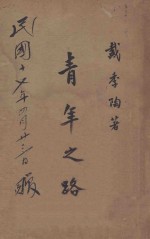 戴季陶著
青年之路
民國十七年一月廿三日